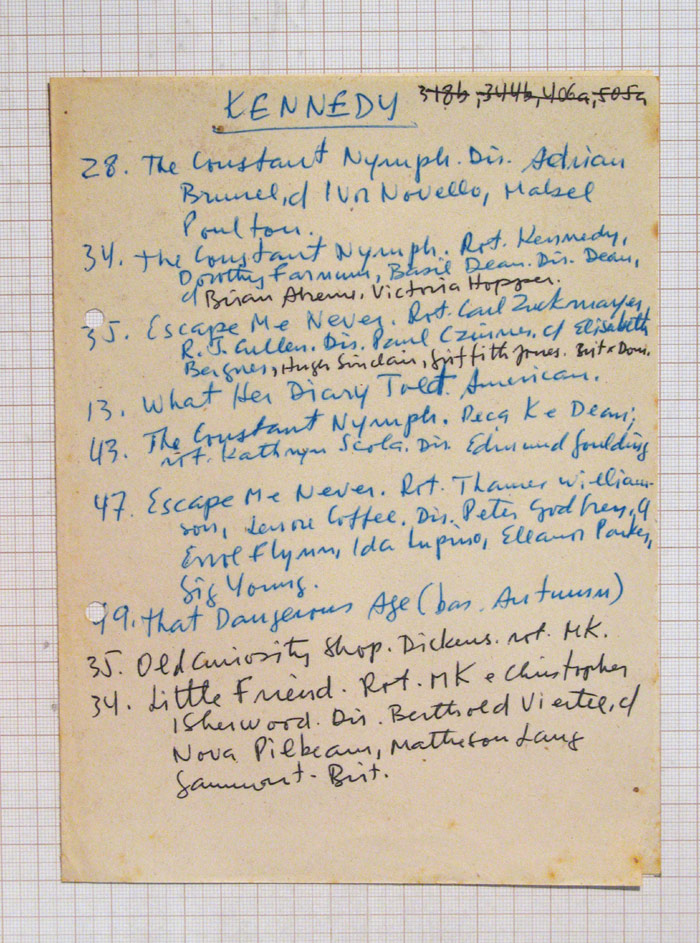 KENNEDY 318b, 344b, 406a, 505a
28. The Constant Nymph. Dir. Adrian
Brunel, c/ Ivor Novello, Mabel
Poulton.
34. The Constant Nymph. Rot. Kennedy,
Dorothy Farnum, Basil Dean. Dir. Dean,
c/ Brian Aherne, Victoria Hopper.
35. Escape Me Never. Rot. Carl Zuckmayer,
R. J. Cullen. Dir. Paul Czinner, c/ Elisabeth
Bergner, Hugh Sinclair, Griffith Jones. Brit x Dom.
13. What Her Diary Told. American.
43. The Constant Nymph. Peça K e Dean;
rot. Kathryn Scola. Dir. Edmund Goulding
47. Escape Me Never. Rot. Thames William-
son, Lenore Coffee. Dir. Peter Godfrey, c/
Errol Flynn, Ida Lupino, Eleanor Parker,
Gig Young.
49. That Dangerous Age (bas. Autumn)
35. Old Curiosity Shop. Dickens. rot. MK.
34. Little Friend. Rot. MK e Christopher
Isherwood. Dir. Berthold Viertel, c/
Nova Pilbeam, Matheson Lang
Gaumont - Brit.